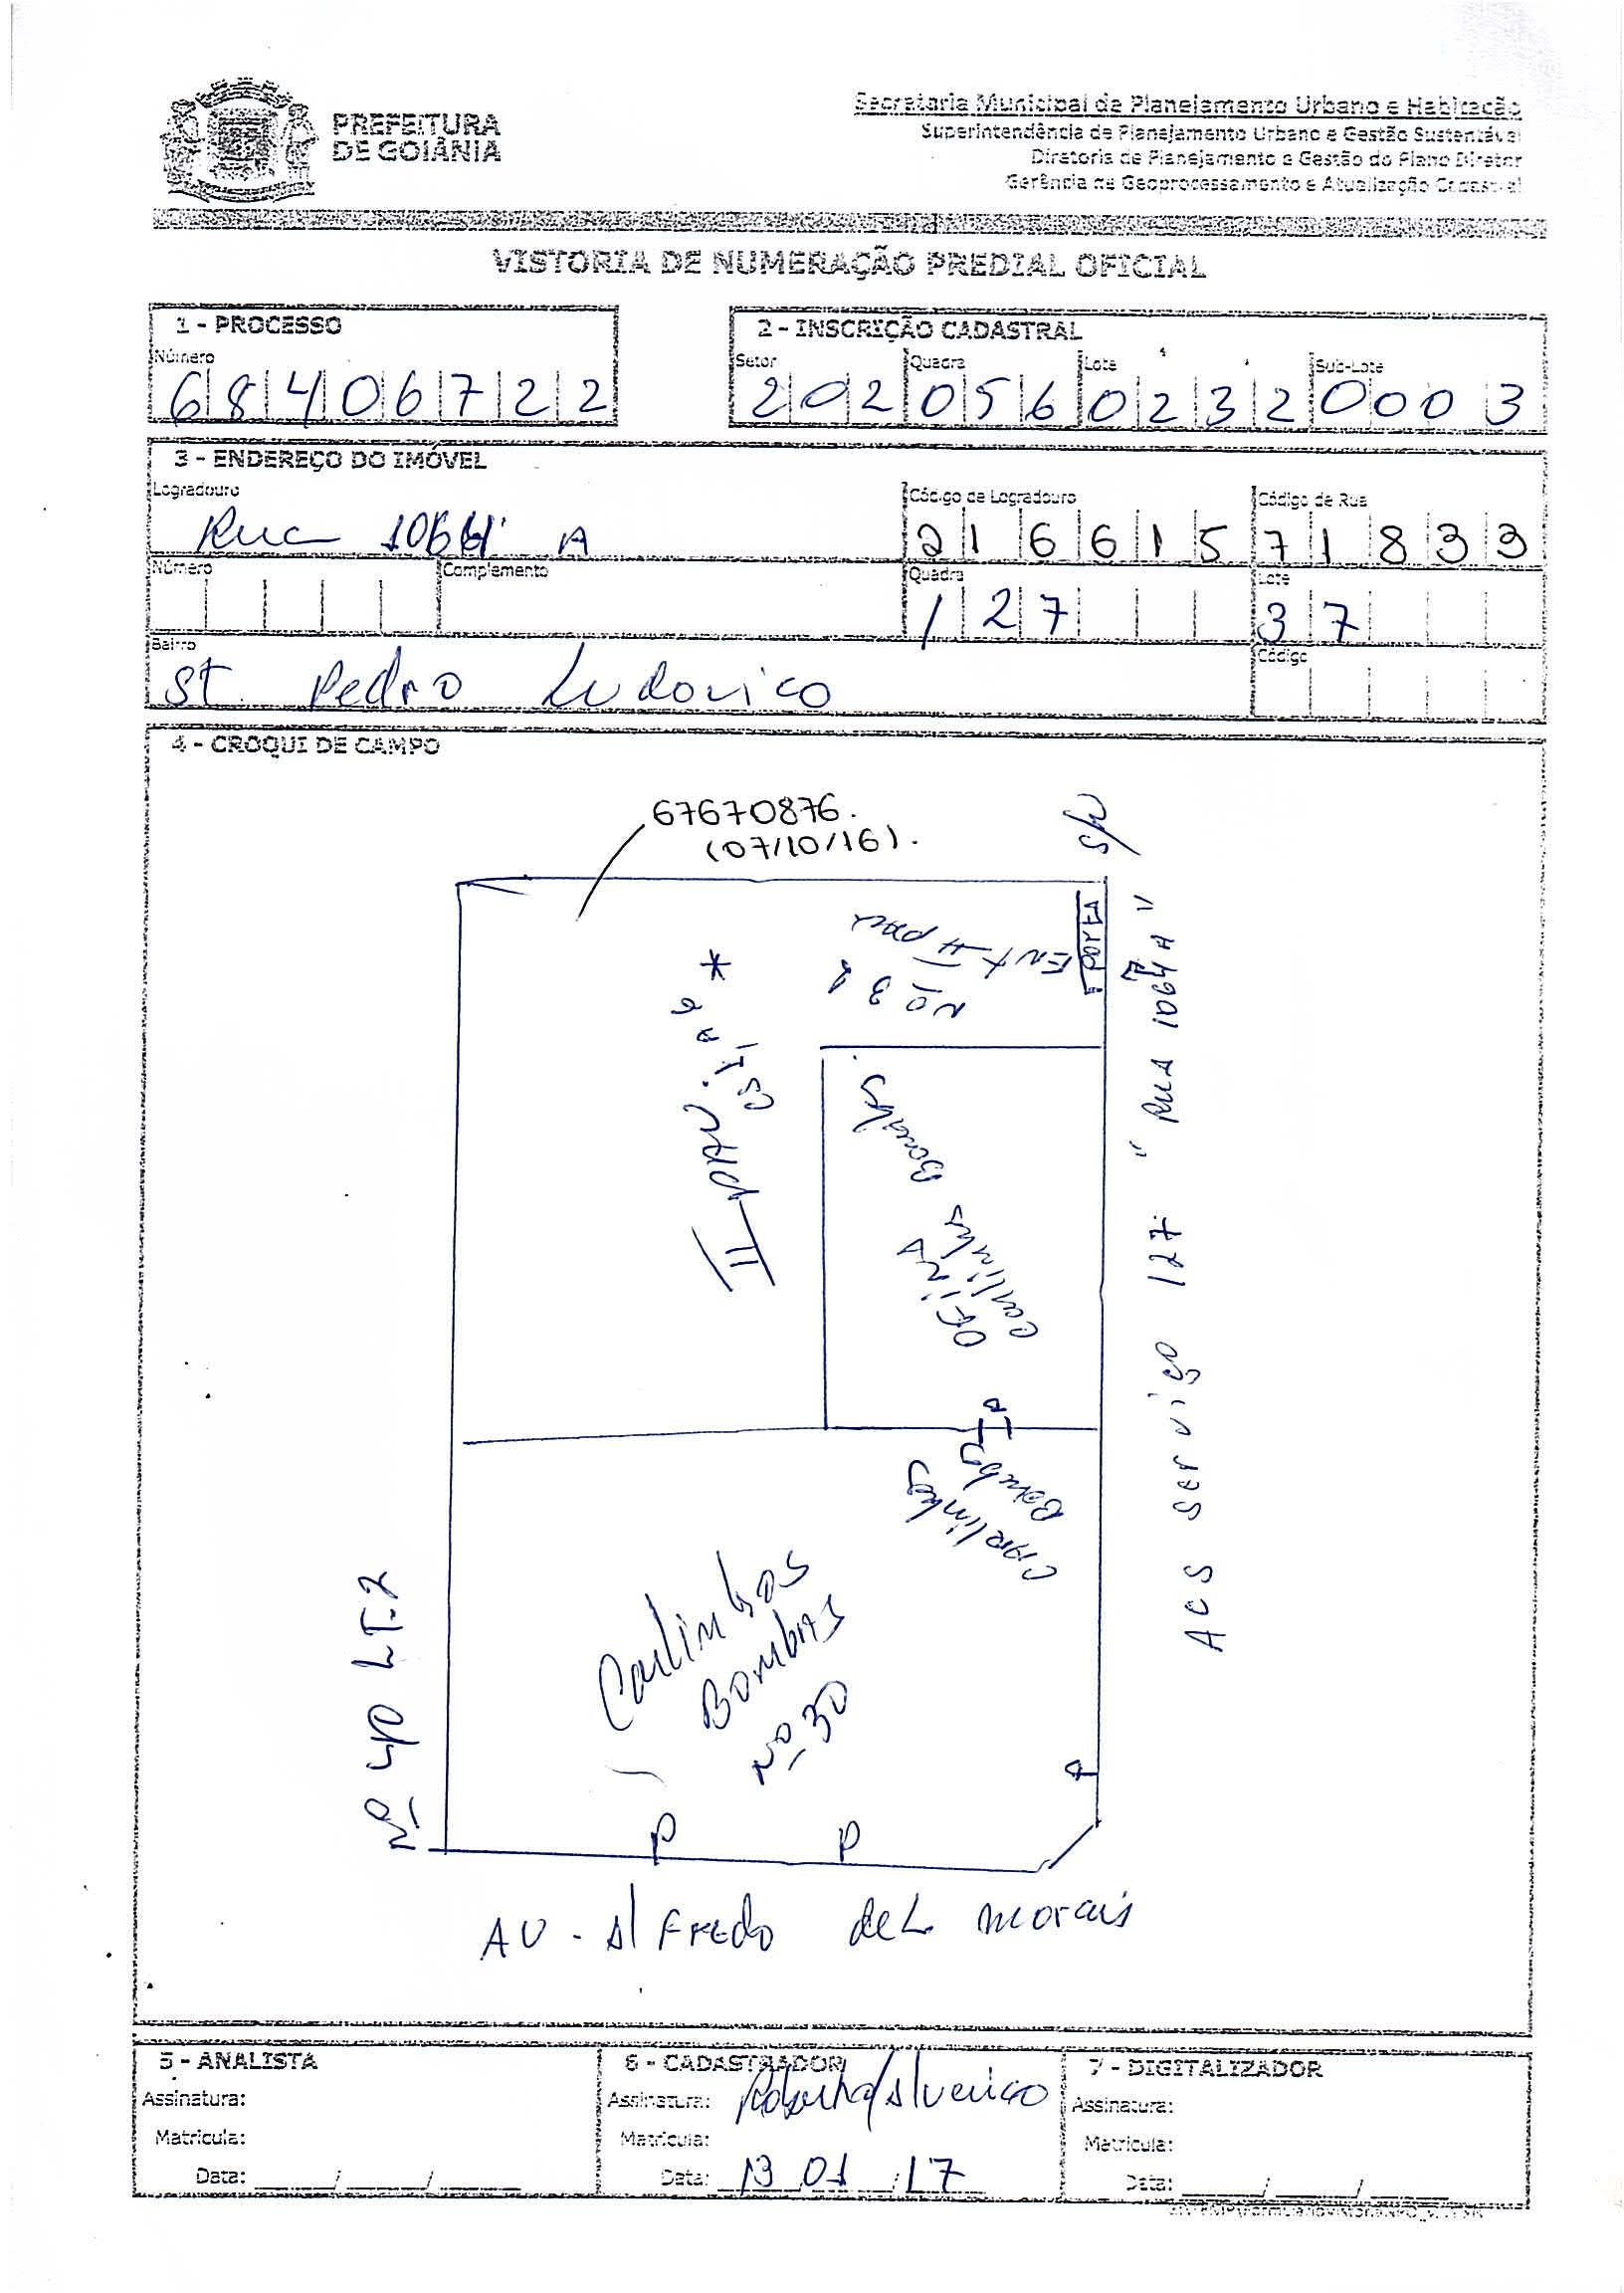 PREFEITURA
DE GOIÂNIA
Secretaria Municipal de Planejamento Urbano e Habitação
Superintendência de Planejamento Urbano e Gestão Sustentável
Diretoria de Planejamento e Gestão do Plano Diretor
Gerência de Geoprocessamento e Atualização Cadastral
VISTORIA DE NUMERAÇÃO PREDIAL OFICIAL
1 - PROCESSO
Número
68406722
2 - INSCRIÇÃO CADASTRAL
Setor Quadra Lote Sub-Lote
202 056 0232 0003
3 - ENDEREÇO DO IMÓVEL
Logradouro Código de Logradouro Código de Rua
Rua 1064 A 216615 71833
Número Complemento Quadra Lote
127 37
Bairro Código
St Pedro Ludovico
4 - CROQUI DE CAMPO
67670876.
(07/10/16).
S/N
PORTA
ENT II pav
Nº 31
II PAV.
*
" RUA 1064 A "
OFINA
Carlinhos Bombas
Carlinhos
Bombas
ACS Serviço 127
Carlinhos
Bombas
Nº 30
Nº 40 LT.2
P
P
P
P
AV. Alfredo de L morais
5 - ANALISTA
Assinatura:
Matrícula:
Data: / /
6 - CADASTRADOR
Assinatura:
Matrícula:
Data: 13 01 / 17
7 - DIGITALIZADOR
Assinatura:
Matrícula:
Data: / /